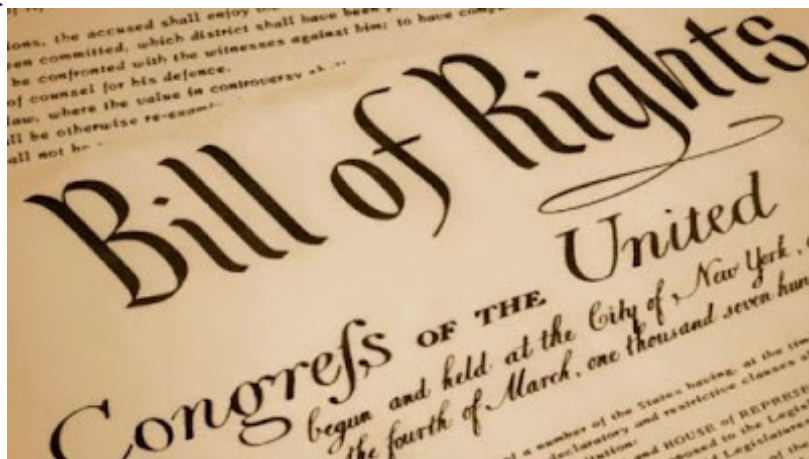 ions, the accused shall enjoy the
een committed, which district shall have been
be confronted with the witnesses against him; to have
of counsel for his defence.
law, where the value in controversy
ll be otherwise re-exam
all not be
Bill of Rights
Congreſs OF THE United
begun and held at the City of New York,
the fourth of March, one thousand seven hun
a number of the States having, at the tim
declaratory and restrictive clauses
itution:
and HOUSE of REPRES
proposed to the Legisl
Legislature
of the